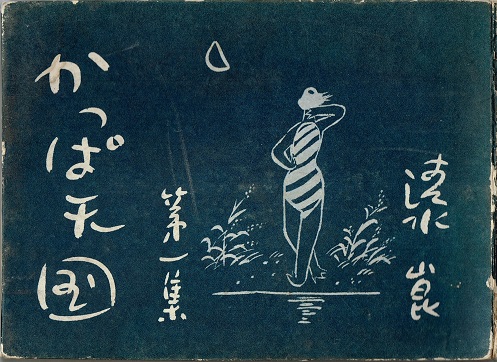 清水崑
かっぱ天国
第一集